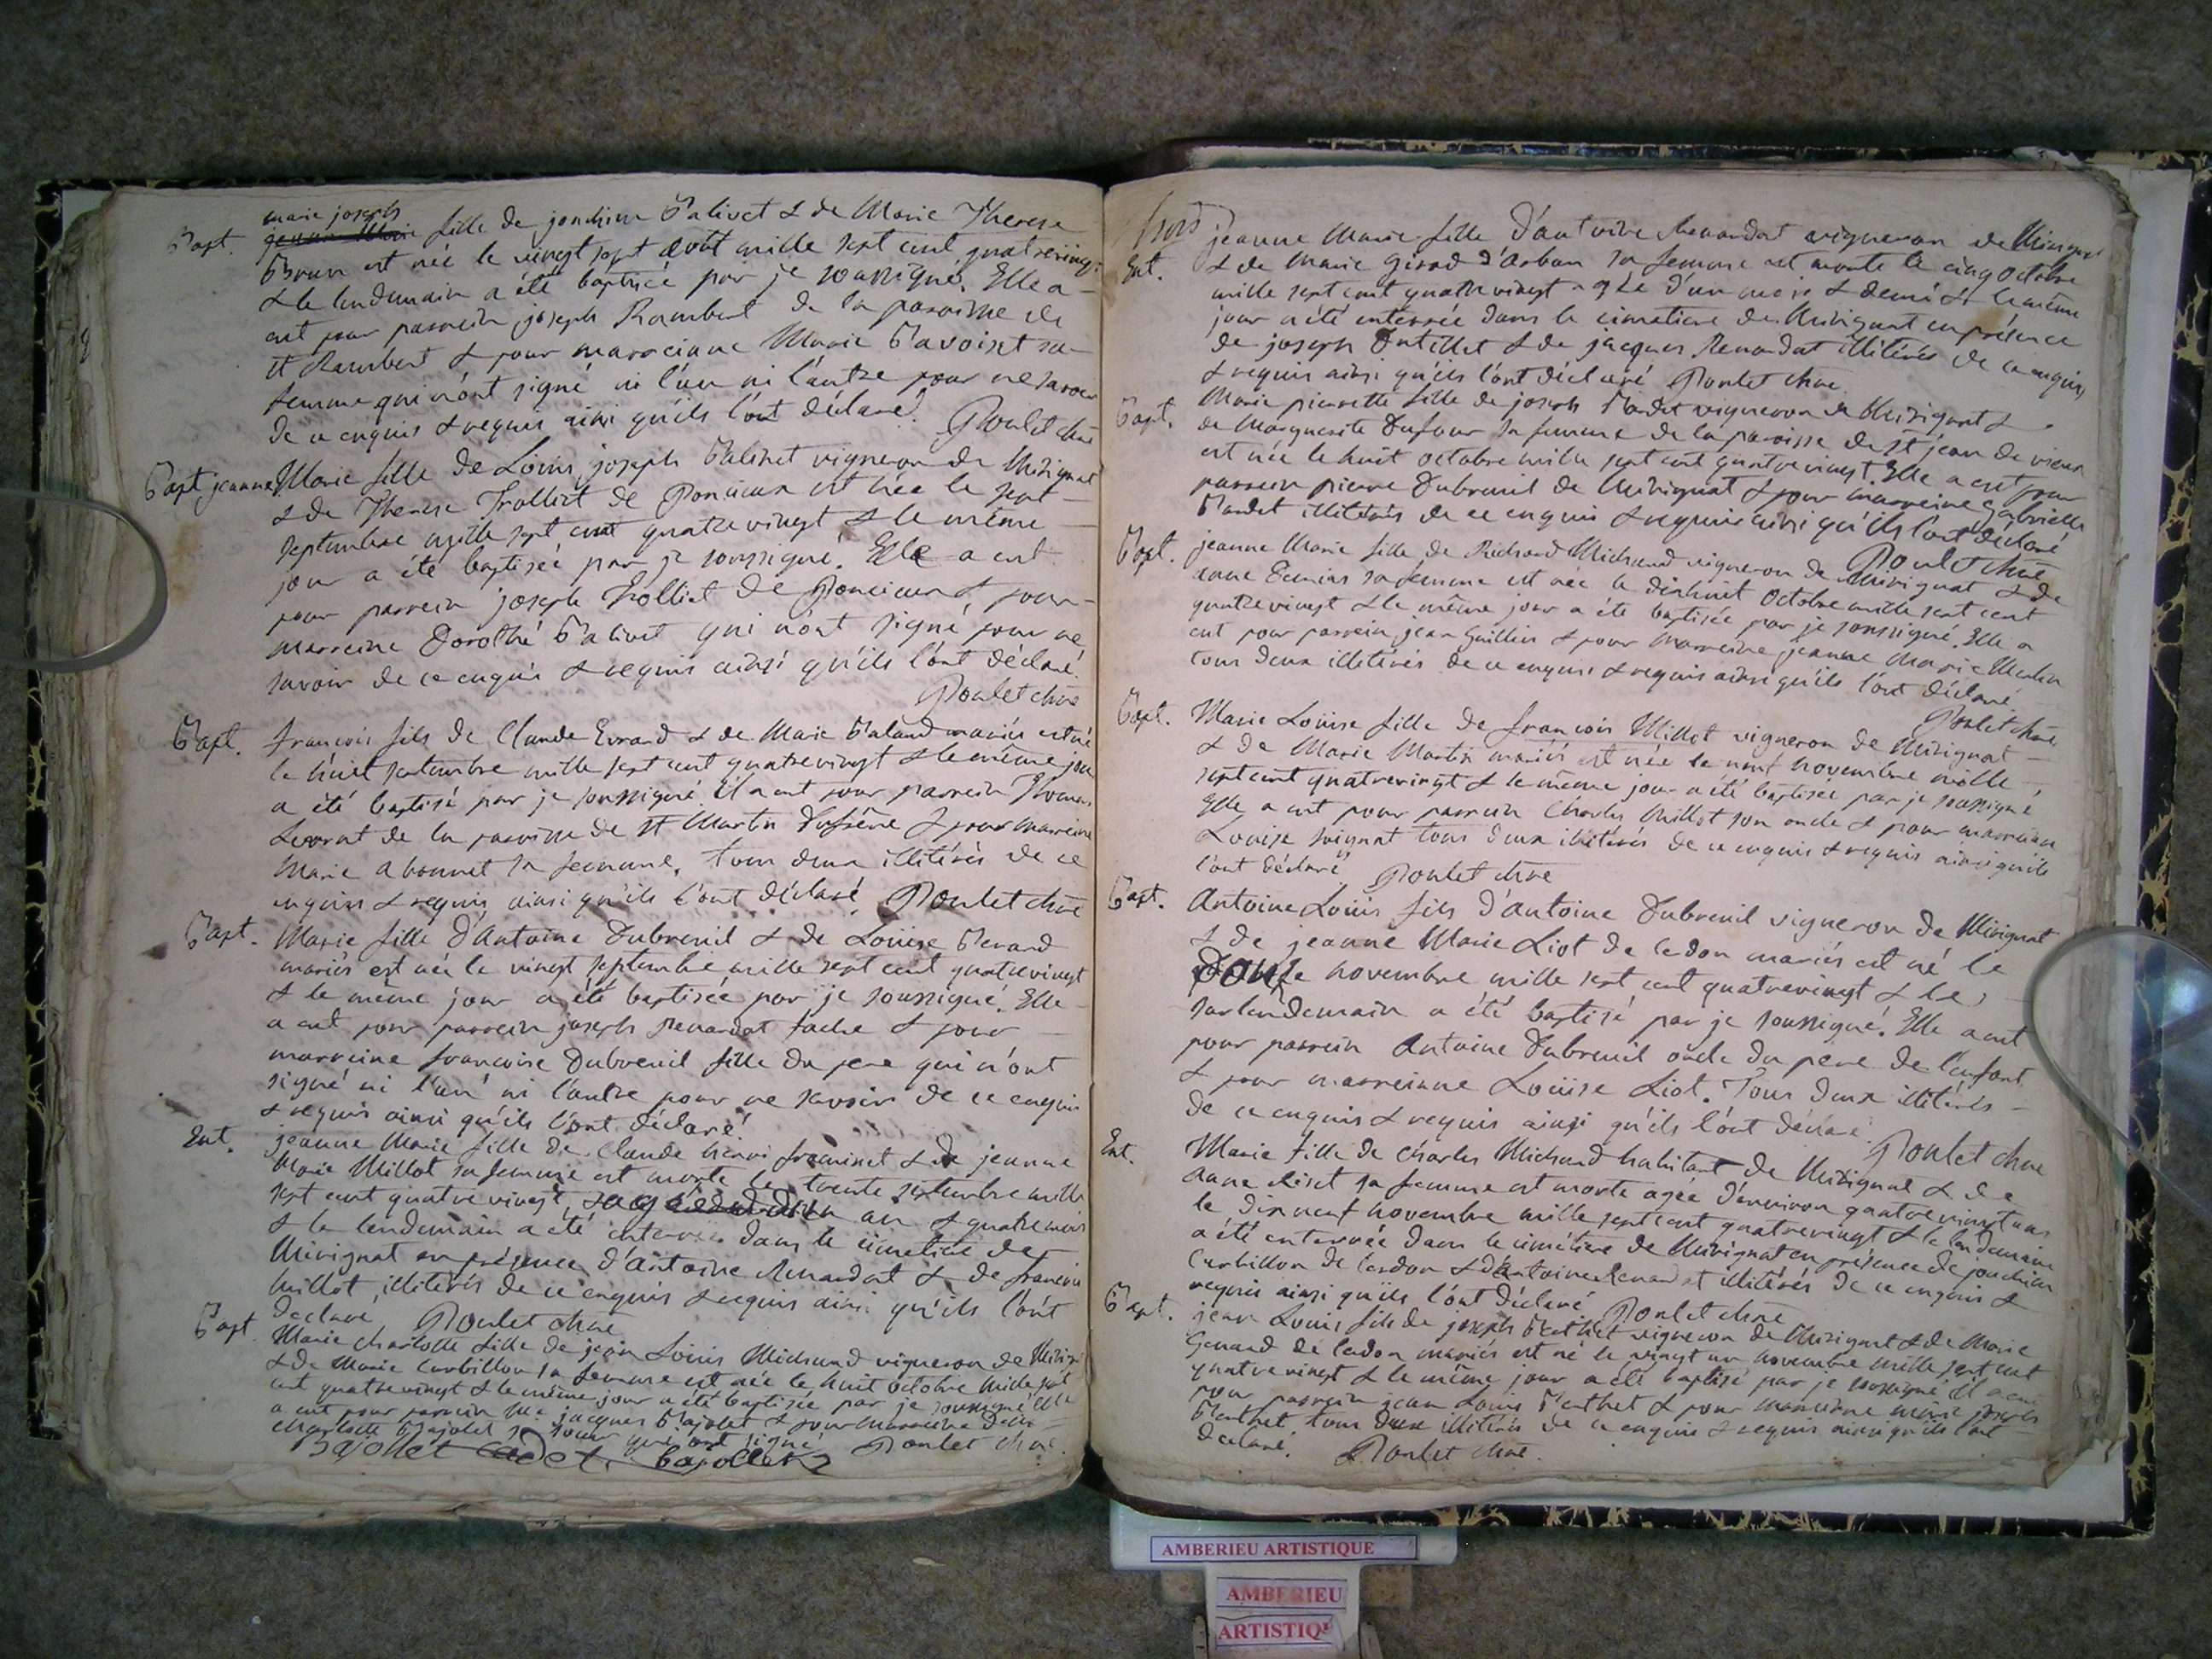 marie joseph
Bapt. jeanne Marie fille de joachim Balivet & de Marie Therese
Brun est née le vingt sept août mille sept cent quatrevingt
& le lendemain a été baptisée par je soussigné. Elle a
eut pour parrein joseph Rambert de la paroisse de
St Rambert & pour marreinne Marie Bavoiset sa
femme qui n'ont signé ni l'un ni l'autre pour ne savoir
de ce enquis & requis ainsi qu'ils l'ont déclaré. Poulet chne
Bapt jeanne Marie fille de Louis joseph Balivet vigneron de Merignat
& de Therese Trolliet de Poncieux est née le sept
septembre mille sept cent quatre vingt & le même
jour a été baptisée par je soussigné. Elle a eut
pour parrein joseph Trolliet de Poncieux & pour
marreine Dorothé Balivet qui n'ont signé pour ne
savoir de ce enquis & requis ainsi qu'ils l'ont déclaré.
Poulet chne
Bapt. françois fils de Claude Evrard & de Marie Baland mariés est né
le huit septembre mille sept cent quatrevingt & le même jour
a été baptisé par je soussigné il a eut pour parrein Thomas
de la paroisse de St Martin Dufrêne & pour marreine
Marie abonnet sa femme, tous deux illitérés de ce
enquis & requis ainsi qu'ils l'ont déclaré. Poulet chne
Bapt. Marie fille d'Antoine Dubreuil & de Loüise Berard
mariés est née le vingt septembre mille sept cent quatrevingt
& le même jour a été baptisée par je soussigné. Elle
a eut pour parrein joseph Renardat tache & pour
marreine francoise Dubreuil fille du pere qui n'ont
signé ni l'un ni l'autre pour ne savoir de ce enquis
& requis ainsi qu'ils l'ont déclaré.
Ent. jeanne Marie fille de Claude henri frominet & de jeanne
Marie Millot sa femme est morte le trente septembre mille
sept cent quatre vingt agée d'un an & quatre mois
& le lendemain a été enterrée dans le cimetiere de
Mirignat en présence d'Antoine Renardat & de francois
Millot, illitérés de ce enquis & requis ainsi qu'ils l'ont
déclaré Poulet chne
Bapt. Marie charlotte fille de jean Loüis Michaud vigneron de
& de Marie Curbillon sa femme est née le huit octobre mille sept
cent quatrevingt & le même jour a été baptisée par je soussigné Elle
a eut pour parrein jacques Bajolet & pour marreine
charlotte Bajolet sa soeur qui ont signé Poulet chne.
Bajollet cadet. Bajollet
jeanne Marie fille d'antoine Renardat vigneron de Mirignat
Ent. & de Marie Girod d'Arban sa femme est morte le cinq octobre
mille sept cent quatre vingt agée d'un mois & demi & le même
jour a été enterrée dans le cimetiere de Mirignat en présence
de joseph Dutillet & de jacques Renardat illitérés de ce enquis
& requis ainsi qu'ils l'ont déclaré Poulet chne.
Bapt. Marie pierrette fille de joseph Bardet vigneron de Mirignat &
de Marguerite Dufour sa femme de la paroisse de St jean de vieux
est née le huit octobre mille sept cent quatrevingt. Elle a eut pour
parrein pierre Dubreuil de Mirignat & pour marreine gabrielle
Bardet illitérés de ce enquis & requis ainsi qu'ils l'ont déclaré
Poulet chne
Bapt. jeanne Marie fille de Richard Michaud vigneron de Mirignat & de
anne sa femme est née le dixhuit octobre mille sept cent
quatrevingt & le même jour a été baptisée par je soussigné. Elle a
eut pour parrein jean Guillin & pour marreine jeanne Marie
tous deux illitérés de ce enquis & requis ainsi qu'ils l'ont déclaré.
Poulet chne
Bapt. Marie Loüise fille de françois Millot vigneron de Mirignat
& de Marie Martin mariés est née le neuf novembre mille
sept cent quatrevingt & le même jour a été baptisée par je soussigné
Elle a eut pour parrein Charles Millot son oncle & pour marreine
Louise tous deux illitérés de ce enquis & requis ainsi qu'ils
l'ont déclaré Poulet chne
Bapt. Antoine Loüis fils d'antoine Dubreuil vigneron de Mirignat
& de jeanne Marie Liot de cerdon mariés est né le
Douze novembre mille sept cent quatrevingt & le
surlendemain a été baptisé par je soussigné. Elle a eut
pour parrein Antoine Dubreuil oncle du pere de l'enfant
& pour marreinne Loüise Liot. Tous deux illitérés
de ce enquis & requis ainsi qu'ils l'ont déclaré.
Poulet chne
Ent. Marie fille de Charles Michaud habitant de Mirignat & de
anne sa femme est morte agée d'environ quatrevingt ans
le dixneuf novembre mille sept cent quatrevingt & le lendemain
a été enterrée dans le cimétiere de Mirignat en présence de joachim
Curbillon de cerdon & d'Antoine Renardat illitérés de ce enquis &
requis ainsi qu'ils l'ont déclaré Poulet chne
Bapt. jean Louis fils de joseph vigneron de Mirignat & de Marie
de cerdon mariés est né le vingt un novembre mille sept cent
quatre vingt & le même jour a été baptisé par je soussigné il a eut
pour parrein jean Louis & pour marreinne marie joseph
tous deux illitérés de ce enquis & requis ainsi qu'ils l'ont
déclaré. Poulet chne.
AMBERIEU ARTISTIQUE
AMBERIEU
ARTISTIQ